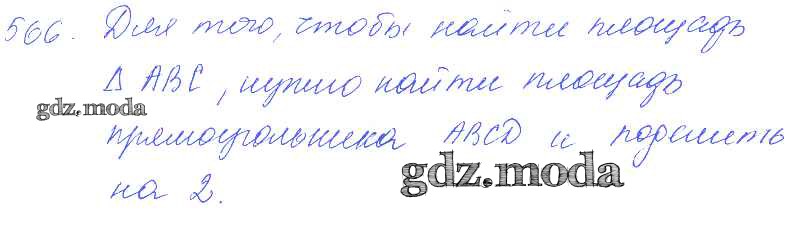 566. Для того, чтобы найти площадь
Δ ABC, нужно найти площадь
gdz.moda
прямоугольника ABCD и поделить
gdz.moda
на 2.